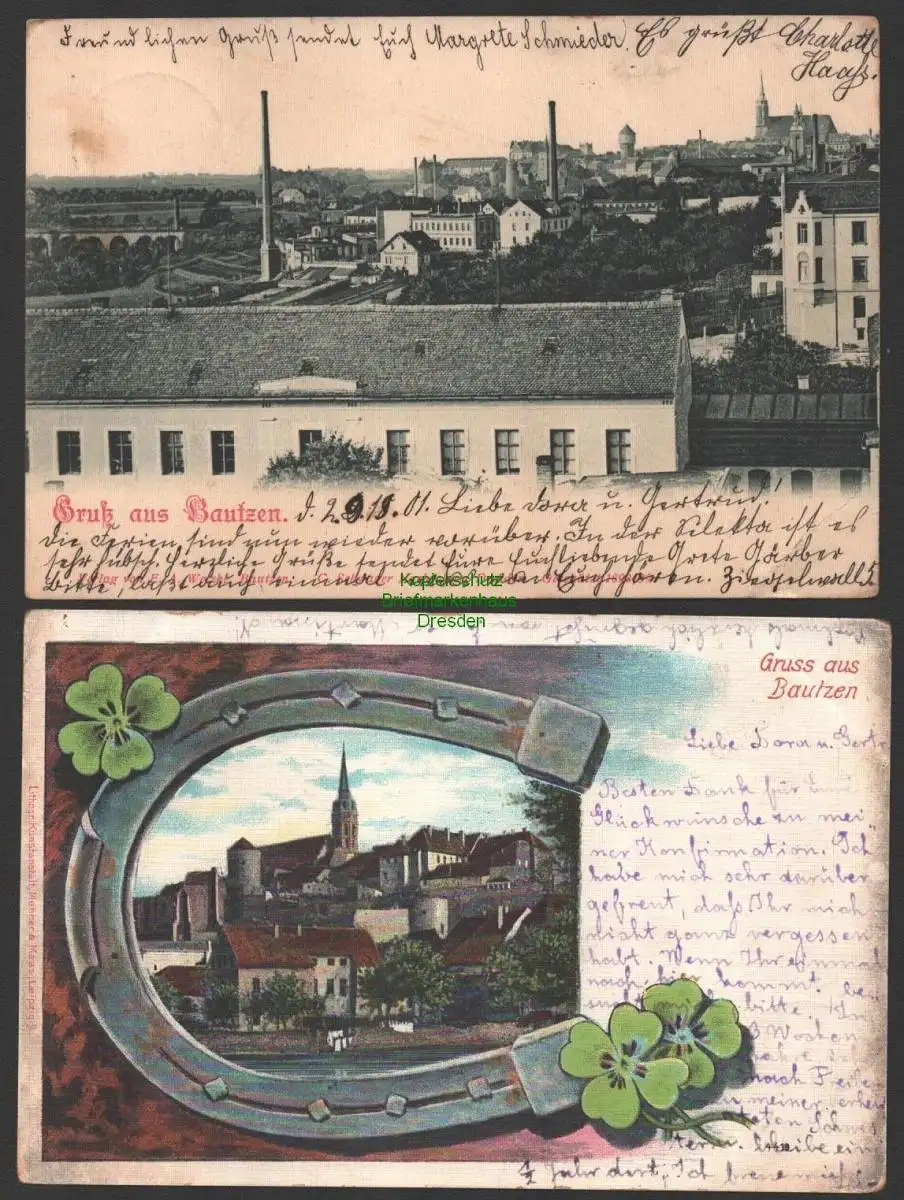 Freundlichen Gruß sendet Euch Margrete Schmieder. Es grüßt Charlotte
Haass.
Gruß aus Bautzen. d. 2 9. 18. 01. Liebe Dora u. Gertrud!
Die Ferien sind nun wieder vorüber. In der Selekta ist es
sehr hübsch. Herzliche Grüße sendet Eure Euch liebende Grete Gärber
Bitte, laßt bald einmal von Euch hören. Ziegelwall 5
Verlag von Bautzen.
Kopierschutz
Briefmarkenhaus
Dresden
Gruss aus
Bautzen
Liebe Dora u. Gertr
Besten Dank für Eure
Glückwünsche zu mei-
ner Konfirmation. Ich
habe mich sehr darüber
gefreut, daß Ihr mich
nicht ganz vergessen
habt. Wenn Ihr einmal
nach kommt
bitte. In
8 Wochen
nach Frei
u meiner verhei
teten Schwes
ter u. bleibe ein
1/2 Jahr dort, Ich freue mich s
Lithogr. Kunstanstalt, Mehner & Maas, Leipzig-R.